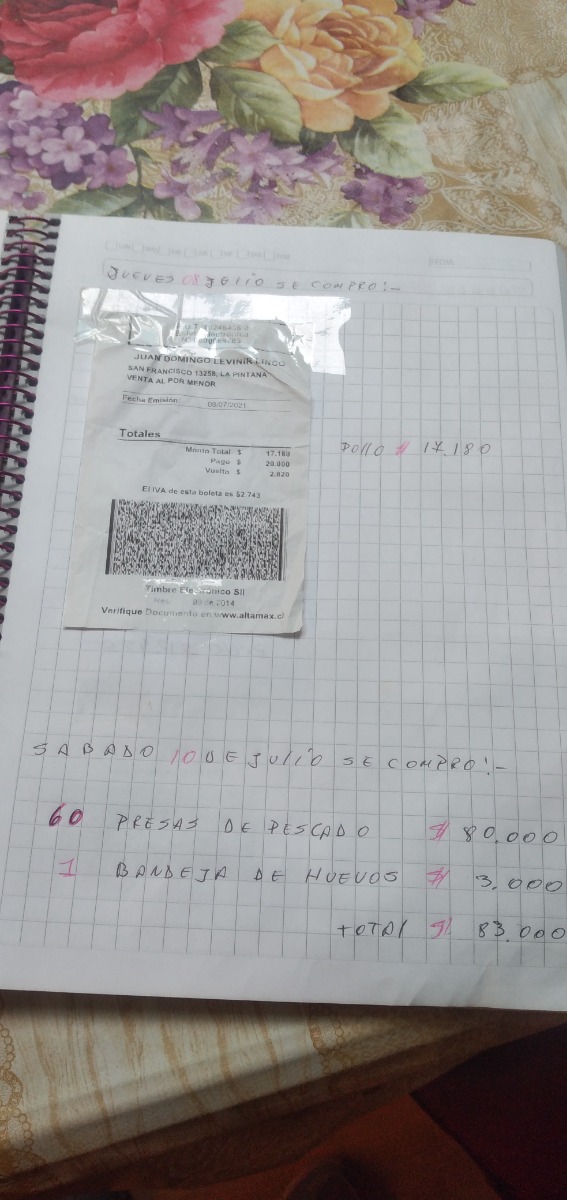 FECHA
JUEVES 08 JULIO SE COMPRO:-
JUAN DOMINGO LEVINIR
SAN FRANCISCO 13258, LA PINTANA
VENTA AL POR MENOR
Fecha Emisión: 08/07/2021
Totales
Monto Total $ 17.180
Pago $ 20.000
Vuelto $ 2.820
El IVA de esta boleta es $2.743
Timbre Electrónico SII
de 2014
Verifique Documento en www.altamax.cl
POLLO $ 17.180
SABADO 10 DE JULIO SE COMPRO:-
60 PRESAS DE PESCADO $ 80.000
1 BANDEJA DE HUEVOS $ 3.000
TOTAL $ 83.000